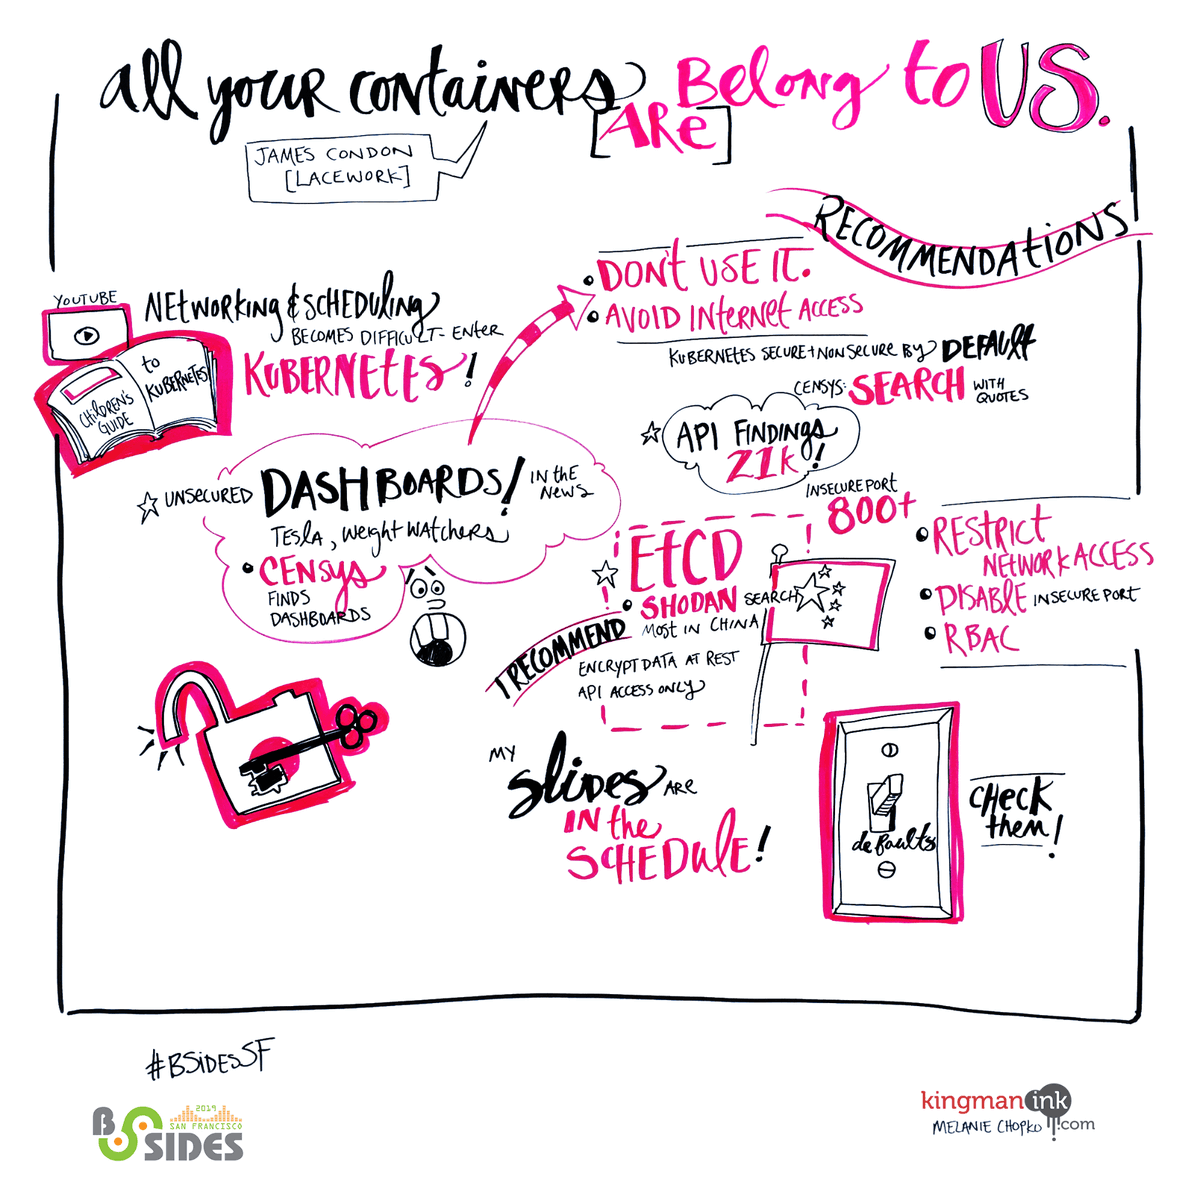 all your containers [ARE] Belong to US.
JAMES CONDON
[LACEWORK]
RECOMMENDATIONS
YOUTUBE
NETWORKING & SCHEDULING
BECOMES DIFFICULT - ENTER
KUBERNETES!
CHILDREN'S
GUIDE
to
KUBERNETES
DON'T USE IT.
AVOID INTERNET ACCESS
KUBERNETES SECURE + NON SECURE BY DEFAULT
CENSYS: SEARCH WITH
QUOTES
API FINDINGS
21K!
UNSECURED DASHBOARDS! IN THE
NEWS
TESLA, WEIGHT WATCHERS
CENSYS
FINDS
DASHBOARDS
INSECURE PORT
800+
EtCD
SHODAN SEARCH
MOST IN CHINA
I RECOMMEND
ENCRYPT DATA AT REST
API ACCESS ONLY
RESTRICT
NETWORK ACCESS
DISABLE INSECURE PORT
RBAC
MY
SLIDES ARE
IN the
SCHEDULE!
defaults
CHECK
them!
#BSidesSF
2019
SAN FRANCISCO
BSIDES
kingman ink
.com
MELANIE CHOPKO